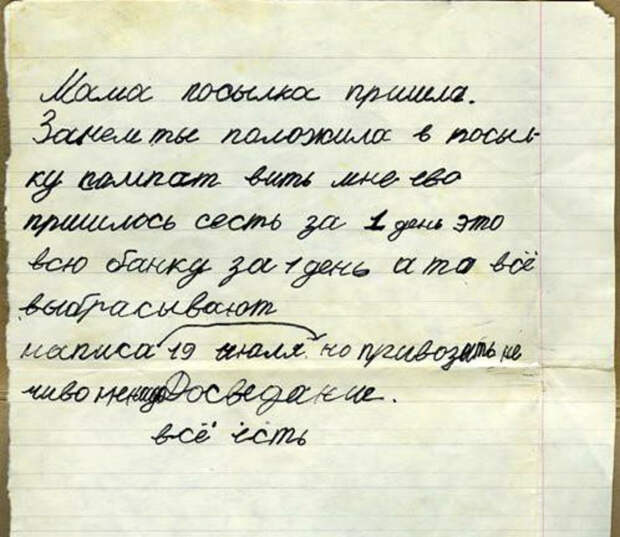 Мама посылка пришла.
Зачем ты положила в посыл-
ку кампат вить мне ево
пришлось сесть за 1 день это
всю банку за 1 день а то всё
выбрасывают
написа 19 июля. но привозить не
чиво не надо Досведание.
всё есть